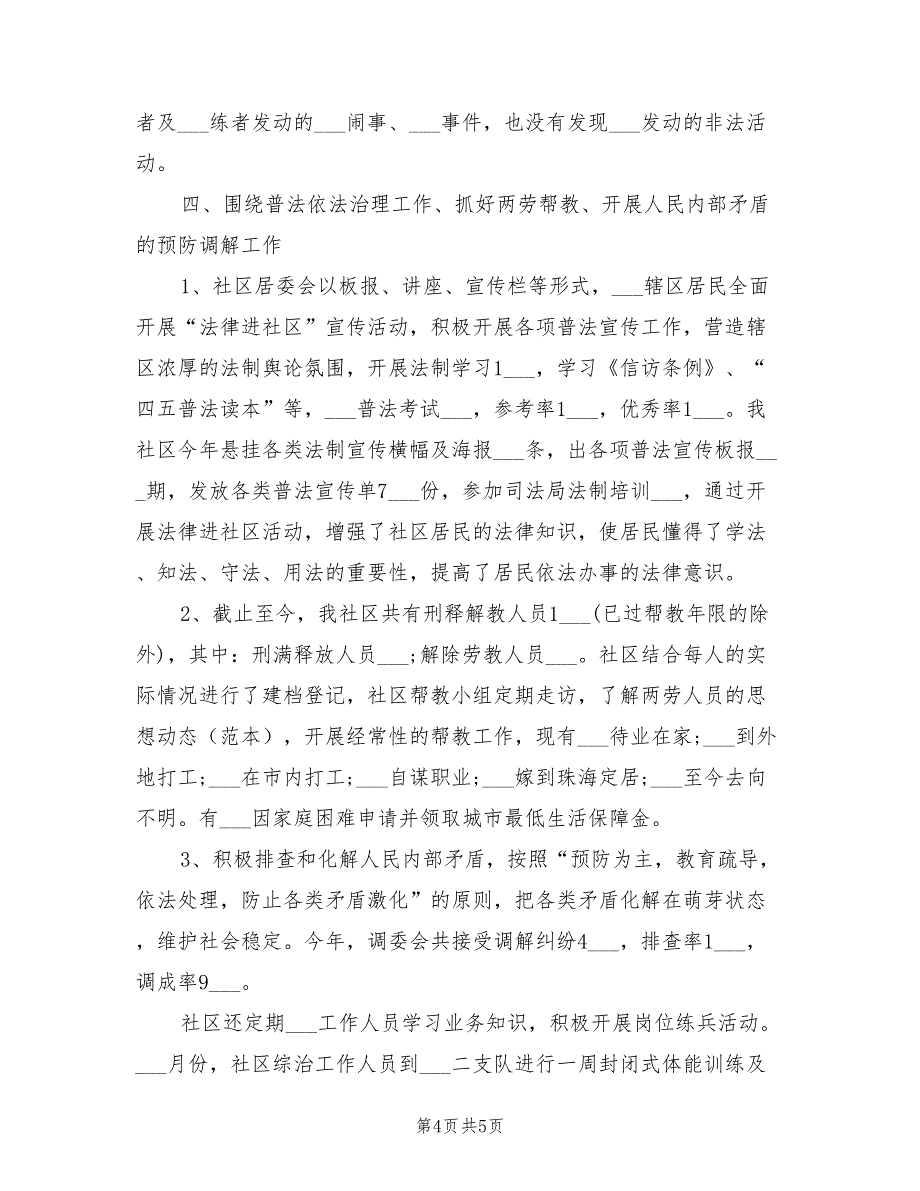 者及___练者发动的___闹事、___事件，也没有发现___发动的非法活
动。
四、围绕普法依法治理工作、抓好两劳帮教、开展人民内部矛盾
的预防调解工作
1、社区居委会以板报、讲座、宣传栏等形式，___辖区居民全面
开展“法律进社区”宣传活动，积极开展各项普法宣传工作，营造辖
区浓厚的法制舆论氛围，开展法制学习1___，学习《信访条例》、“
四五普法读本”等，___普法考试___，参考率1___，优秀率1___。我
社区今年悬挂各类法制宣传横幅及海报___条，出各项普法宣传板报__
_期，发放各类普法宣传单7___份，参加司法局法制培训___，通过开
展法律进社区活动，增强了社区居民的法律知识，使居民懂得了学法
、知法、守法、用法的重要性，提高了居民依法办事的法律意识。
2、截止至今，我社区共有刑释解教人员1___(已过帮教年限的除
外)，其中：刑满释放人员___;解除劳教人员___。社区结合每人的实
际情况进行了建档登记，社区帮教小组定期走访，了解两劳人员的思
想动态（范本），开展经常性的帮教工作，现有___待业在家;___到外
地打工;___在市内打工;___自谋职业;___嫁到珠海定居;___至今去向
不明。有___因家庭困难申请并领取城市最低生活保障金。
3、积极排查和化解人民内部矛盾，按照“预防为主，教育疏导，
依法处理，防止各类矛盾激化”的原则，把各类矛盾化解在萌芽状态
，维护社会稳定。今年，调委会共接受调解纠纷4___，排查率1___，
调成率9___。
社区还定期___工作人员学习业务知识，积极开展岗位练兵活动。
___月份，社区综治工作人员到___二支队进行一周封闭式体能训练及
第4页 共5页